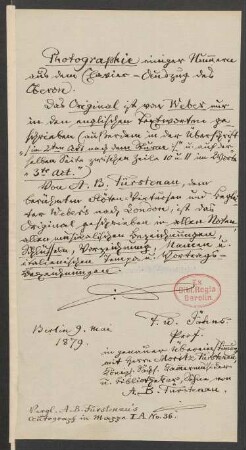 Photographie einiger Nummern
aus dem Clavier-Auszug des
Oberon.
Das Original ist von Weber nur
in den englischen Textworten ge-
schrieben (außerdem in der Überschrift
in 2ten Act nach dem u. auf der-
selben Seite zwischen Zeile 10 u 11 im Worte
3ter Act.)
Von A. B. Fürstenau, dem
berühmten Flöten-Virtuosen und Beglei-
ter Weber's nach London, ist das
Original geschrieben in allen Noten,
allen musikalischen Bezeichnungen,
Schlüsseln, Vorzeichnung, Nuancen u
italienischen Tempo u. Vortrags-
bezeichnungen.
Ex
Bibliotheca
Berolin.
Berlin 9. Mai
1879.
F. W. Jähns
Prof.
in genauer Übereinstimmung
mit Herrn Moritz Fürstenau,
Königl. Sächs. Kammermusiker
u Bibliothekar, Sohne von
A. B. Fürstenau.
Vergl. A. B. Fürstenau's
Autograph in Mappe I A No. 36.